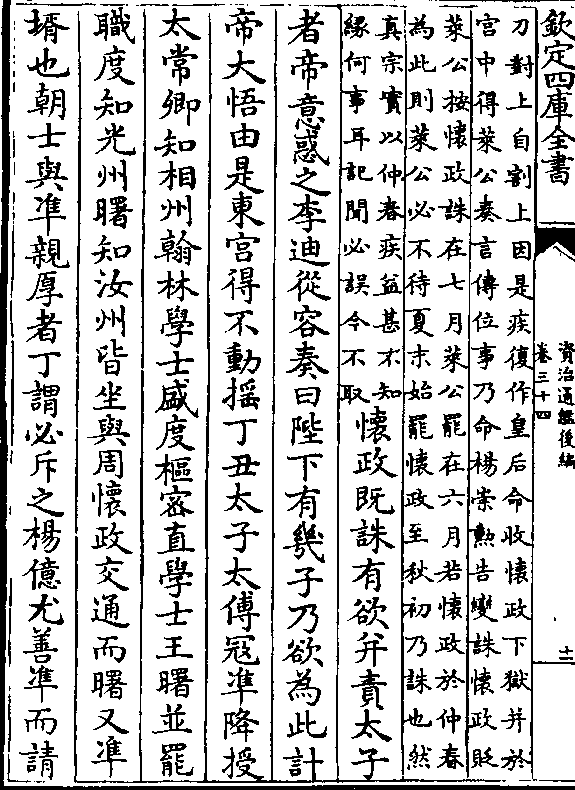 欽定四庫全書
資治通鑑後編
卷三十四
十一
刀對上自割上因是疾復作皇后命收懷政下獄并於
宫中得萊公奏言傳位事乃命楊崇勲告變誅懷政貶
萊公按懷政誅在七月萊公罷在六月若懷政於仲春
為此則萊公必不待夏末始罷懷政至秋初乃誅也然
真宗實以仲春疾益甚不知
緣何事耳記聞必誤今不取
懷政既誅有欲并責太子
者帝意惑之李迪從容奏曰陛下有幾子乃欲為此計
帝大悟由是東宫得不動揺丁丑太子太傅冦準降授
太常卿知相州翰林學士盛度樞宻直學士王曙並罷
職度知光州曙知汝州皆坐與周懷政交通而曙又準
壻也朝士與準親厚者丁謂必斥之楊億尤善準而請